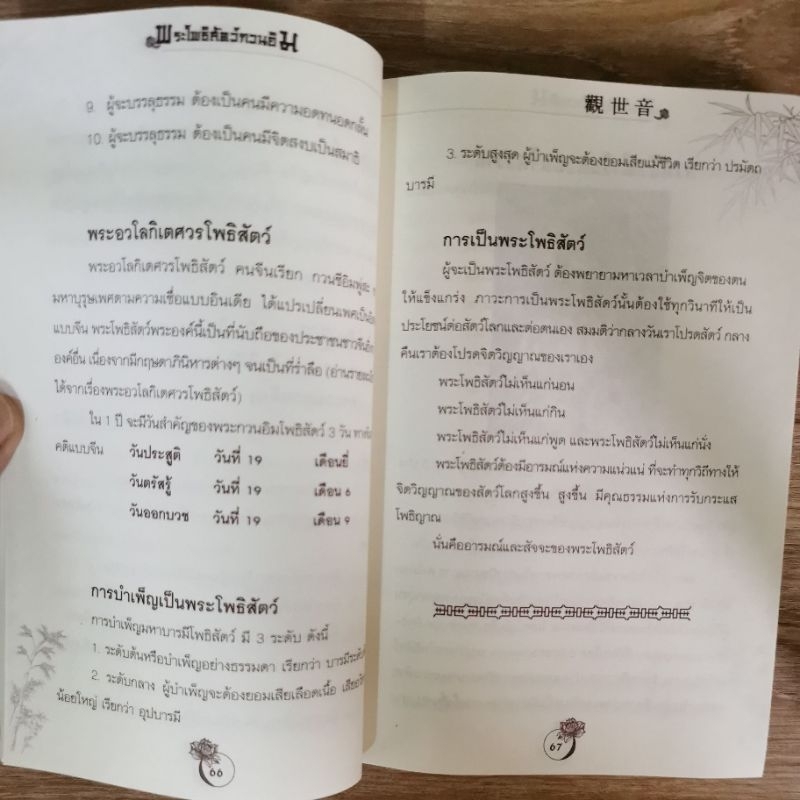 พระโพธิสัตว์กวนอิม
9. ผู้จะบรรลุธรรม ต้องเป็นคนมีความอดทนอดกลั้น
10. ผู้จะบรรลุธรรม ต้องเป็นคนมีจิตสงบเป็นสมาธิ
พระอวโลกิเตศวรโพธิสัตว์
พระอวโลกิเตศวรโพธิสัตว์ คนจีนเรียก กวนซีอิมพู่สะ
มหาบุรุษเพศตามความเชื่อแบบอินเดีย ได้แปรเปลี่ยนเพศเป็น
แบบจีน พระโพธิสัตว์พระองค์นี้เป็นที่นับถือของประชาชนชาวจีน
องค์อื่น เนื่องจากมีกฤษดาภินิหารต่างๆ จนเป็นที่ร่ำลือ (อ่านราย
ได้จากเรื่องพระอวโลกิเตศวรโพธิสัตว์)
ใน 1 ปี จะมีวันสำคัญของพระกวนอิมโพธิสัตว์ 3 วัน
คติแบบจีน วันประสูติ วันที่ 19 เดือนยี่
วันตรัสรู้ วันที่ 19 เดือน 6
วันออกบวช วันที่ 19 เดือน 9
การบำเพ็ญเป็นพระโพธิสัตว์
การบำเพ็ญมหาบารมีโพธิสัตว์ มี 3 ระดับ ดังนี้
1. ระดับต้นหรือบำเพ็ญอย่างธรรมดา เรียกว่า บารมีระดับ
2. ระดับกลาง ผู้บำเพ็ญจะต้องยอมเสียเลือดเนื้อ เสียอวัย
น้อยใหญ่ เรียกว่า อุปบารมี
66
觀世音
3. ระดับสูงสุด ผู้บำเพ็ญจะต้องยอมเสียแม้ชีวิต เรียกว่า ปรมัตถ
บารมี
การเป็นพระโพธิสัตว์
ผู้จะเป็นพระโพธิสัตว์ ต้องพยายามหาเวลาบำเพ็ญจิตของตน
ให้แข็งแกร่ง ภาวะการเป็นพระโพธิสัตว์นั้นต้องใช้ทุกวินาทีให้เป็น
ประโยชน์ต่อสัตว์โลกและต่อตนเอง สมมติว่ากลางวันเราโปรดสัตว์ กลาง
คืนเราต้องโปรดจิตวิญญาณของเราเอง
พระโพธิสัตว์ไม่เห็นแก่นอน
พระโพธิสัตว์ไม่เห็นแก่กิน
พระโพธิสัตว์ไม่เห็นแก่พูด และพระโพธิสัตว์ไม่เห็นแก่นั่ง
พระโพธิสัตว์ต้องมีอารมณ์แห่งความแน่วแน่ ที่จะทำทุกวิถีทางให้
จิตวิญญาณของสัตว์โลกสูงขึ้น สูงขึ้น มีคุณธรรมแห่งการรับกระแส
โพธิญาณ
นั่นคืออารมณ์และสัจจะของพระโพธิสัตว์
67